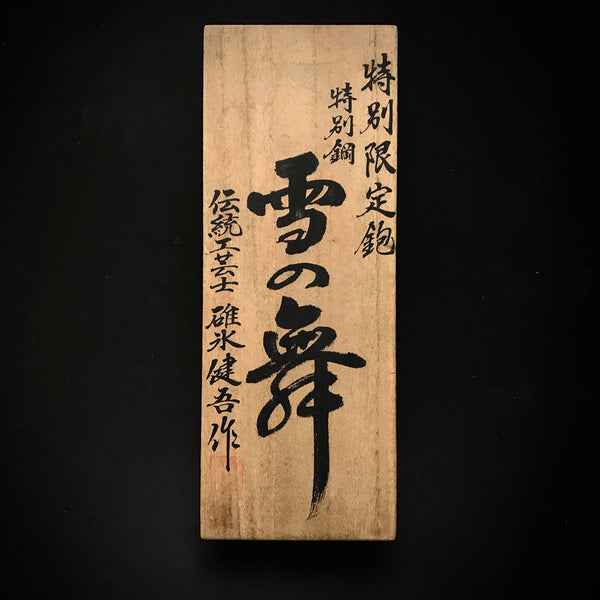 特別限定鉋
特別鋼
雪の舞
伝統工芸士 碓氷健吾作